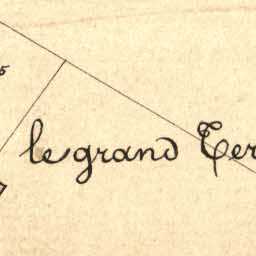 le grand Ter